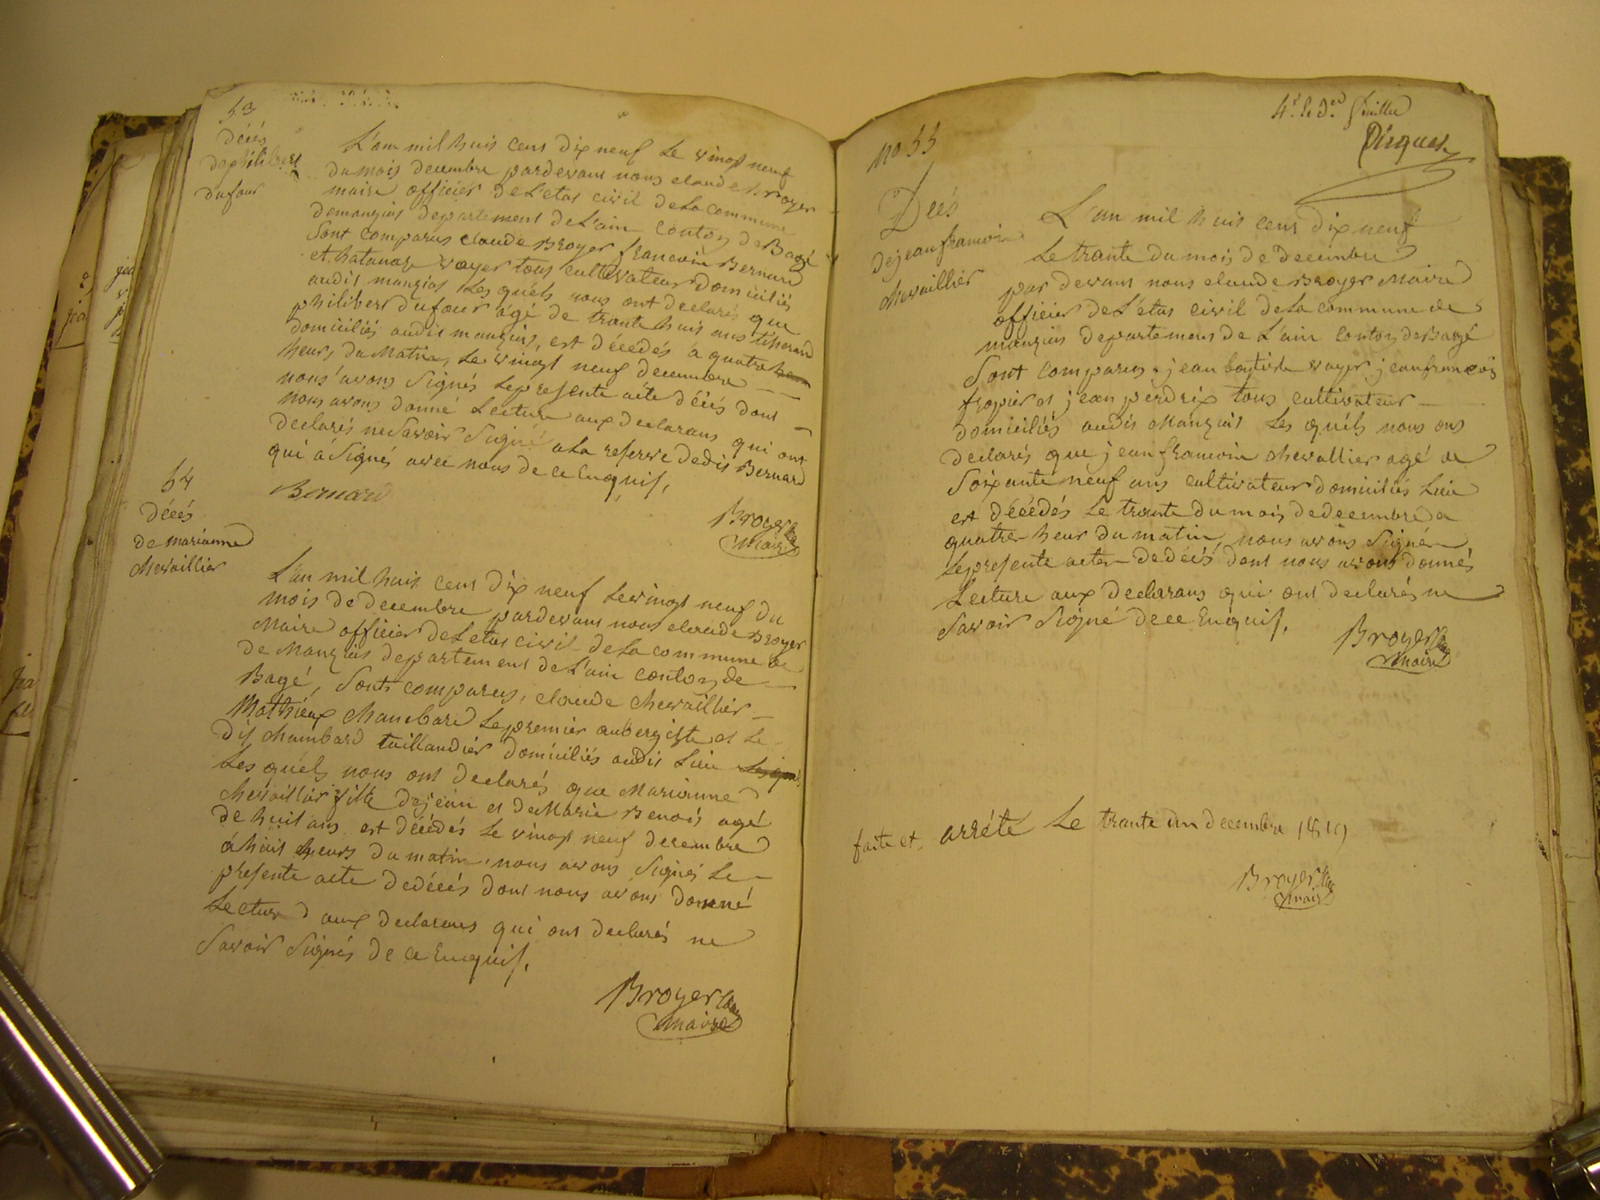 53
décés
de philibert
dufour
L'an mil huis cens dix neuf Le vingt neuf
du mois decembre pardevant nous claude broyer
maire officier de L'etas civil de La commune
de manzias departement de L'ain conton de Bagé
Sont comparus claude Broyer francoin Bernard
et hatanaze voyer tous cultivateur domiciliés
audit manzias Les quéls nous ont declarés que
philibert dufour agé de trante huit ans tisserand
domiciliés audit manzias, est décédés a quatre
heurs du Matin, Le vingt neuf decembre
nous avons Signés Le presente acte décés dont
nous avons donné Lecture aux declarans qui ont
declarés ne Savoir Signé a La reserve dedis Bernard
qui á Signés avec nous de ce Enquis,
Bernard
Broyer
maire
54
décés
de marianne
chevaillier
L'an mil huis cens dix neuf Le vingt neuf du
mois de decembre pardevant nous claude Broyer
Maire officier de L'etas civil de La commune de
de Manzias departement de L'ain conton de
Bagé, Sont comparus, claude chevaillier
Mathieux chambard Le premier aubergiste et Le
dis chambard taillandier domiciliés audit Lieu
Les quéls nous ont declarés que Marianne
chevaillier fille de jean et de Marie Benois agé
de huit ans est décédés Le vingt neuf decembre
á huit heurs du matin, nous avons Signés Le
presente acte de décés dont nous avons donné
Lecture aux declarans qui ont declarés ne
Savoir Signés de ce Enquis,
Broyer
maire
4e et der feuillet
no 55
Décés
de jean francoin
chevaillier
L'an mil huis cens dix neuf
Le trante du mois de decembre
par devant nous claude Broyer Maire
officier de L'étas civil de La commune de
manzias departemens de L'ain conton de Bagé
Sont comparus jean baptiste voyer jean francois
fropier et jean perdrix tous cultivateur
domiciliés audit Manzias Les quéls nous ons
declarés que jean francoin chevallier agé de
Soixante neuf ans cultivateur domiciliés Lieu
est décédés Le trante du mois de decembre a
quatre heur du matin, nous avons Signé
Le presente acte de décés dont nous avons donnés
Lecture aux declarans qui ont declarés ne
Savoir Signé de ce Enquis,
Broyer
maire
faite et arréte Le trante un decembre 1819
Broyer
maire